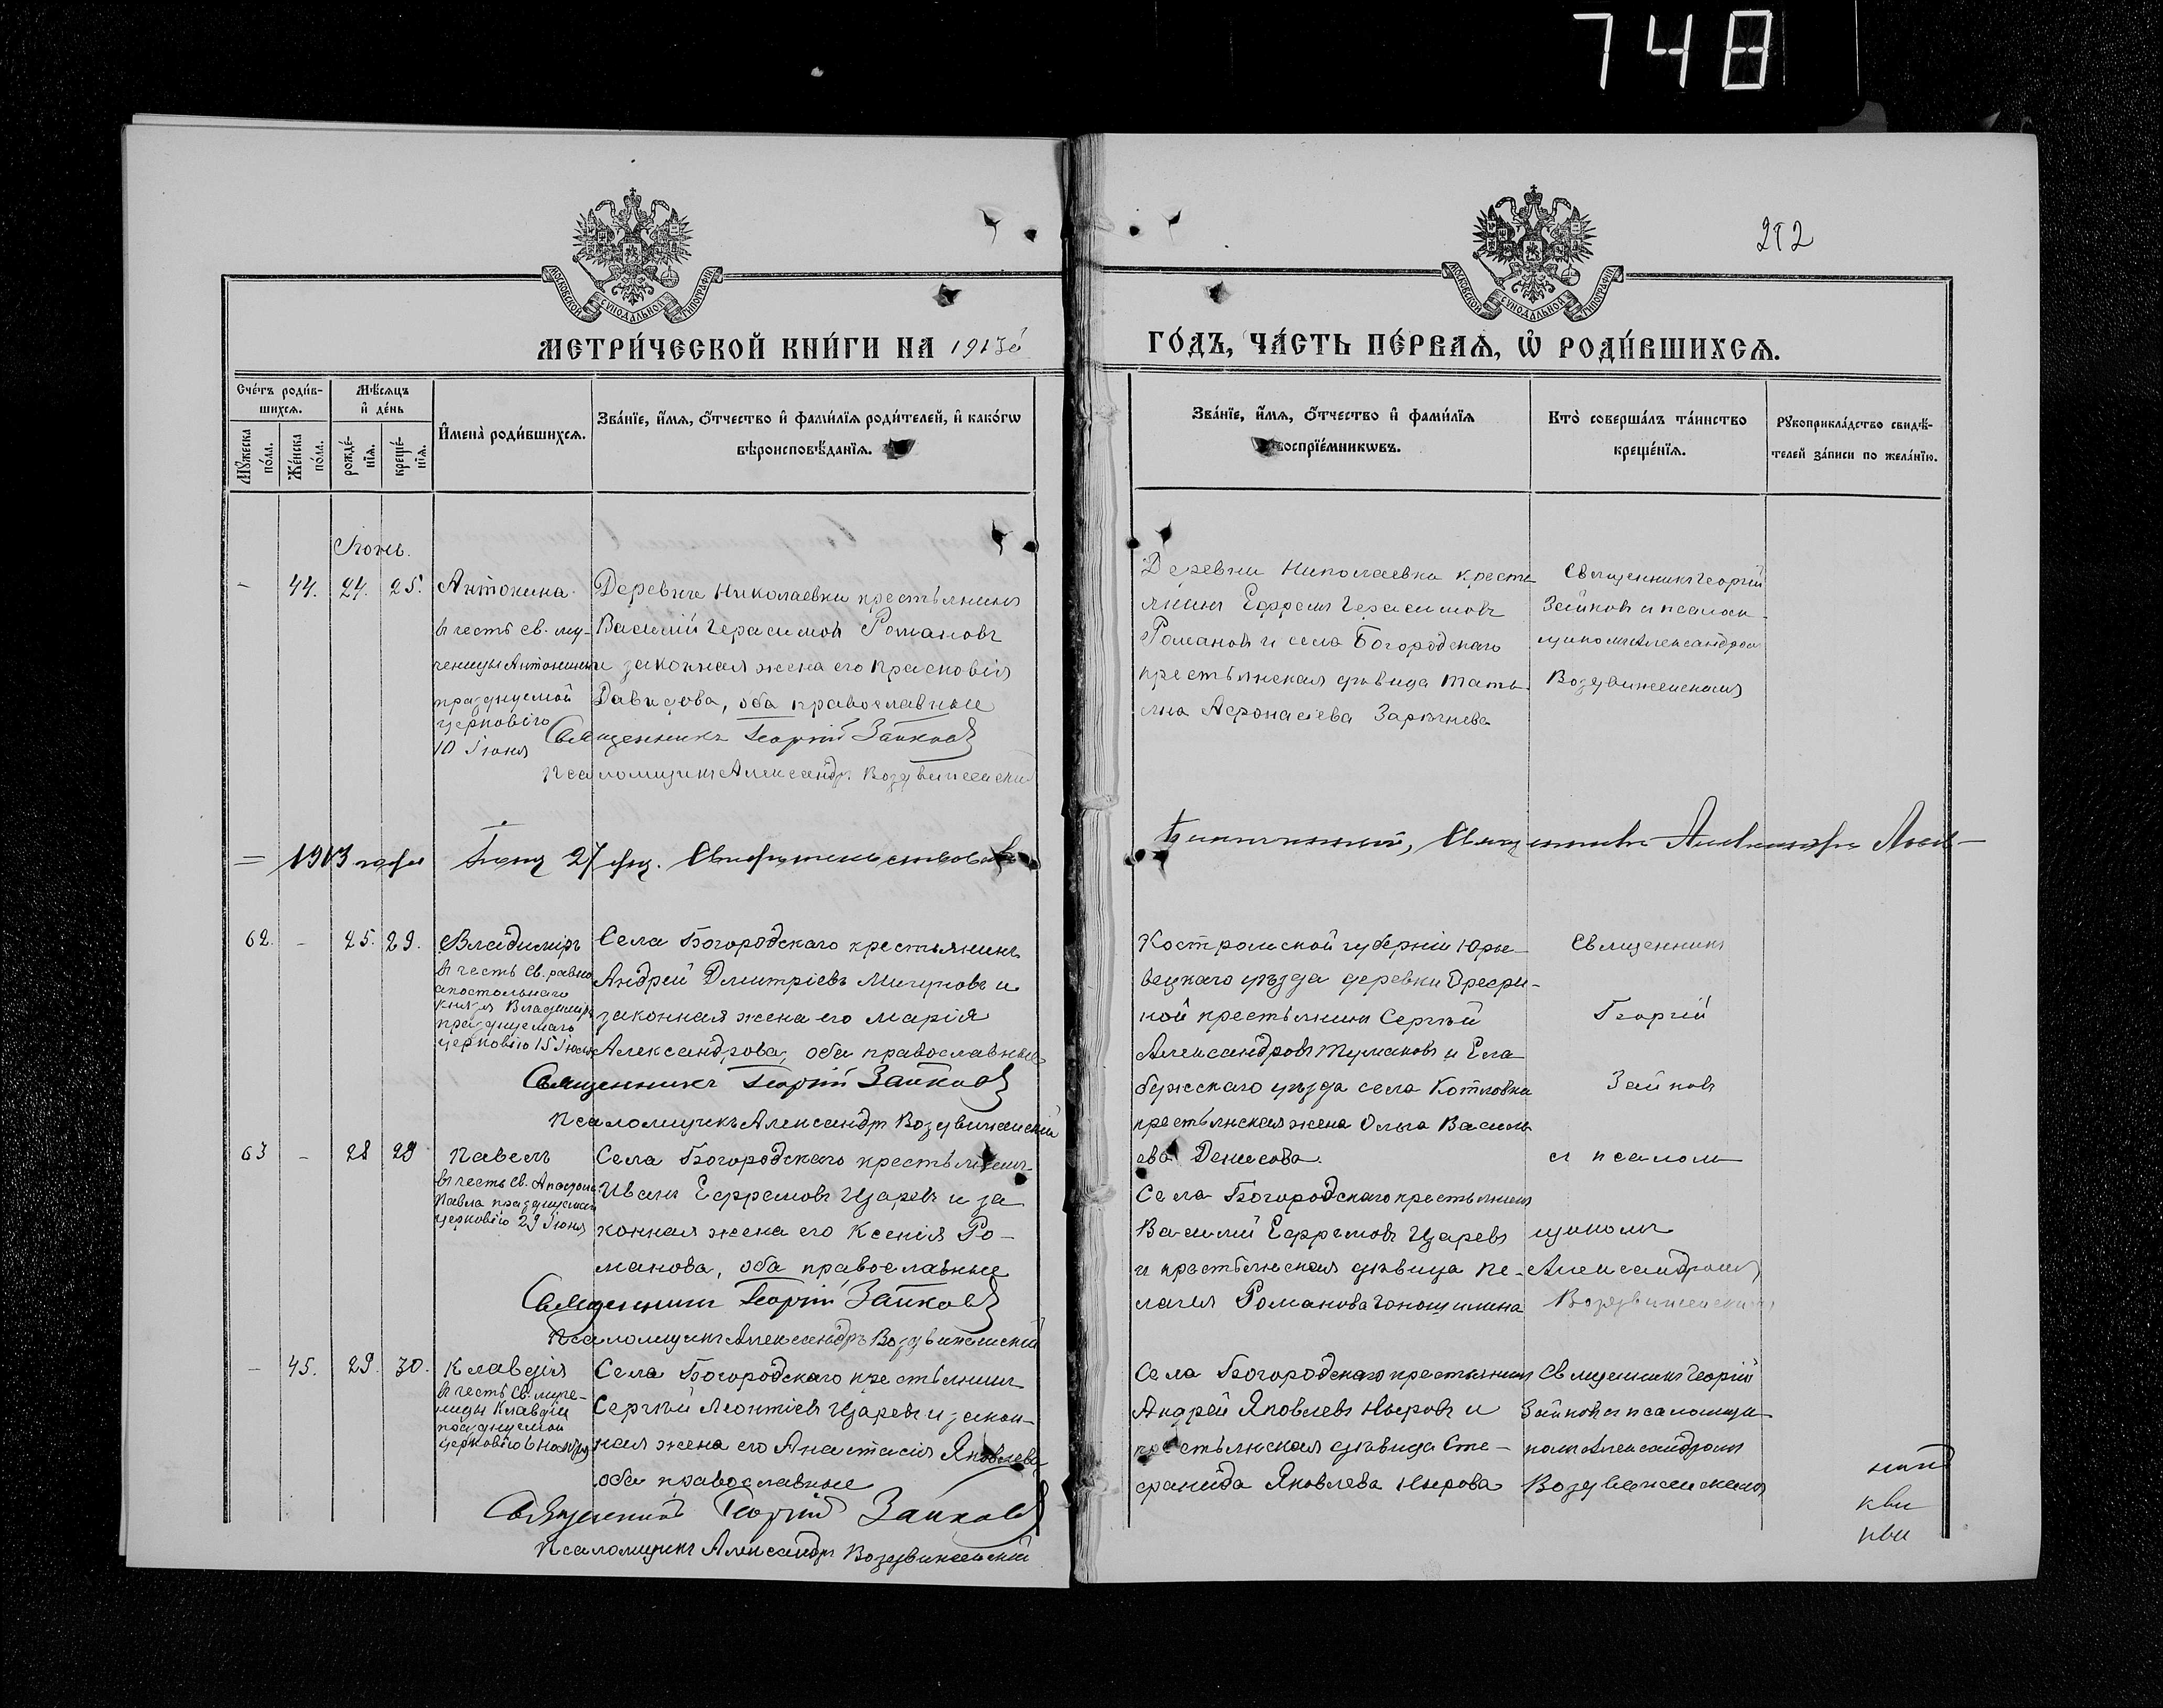 748
212
МОСКОВСКОЙ СѴНОДАЛЬНОЙ ТИПОГРАФІИ
МОСКОВСКОЙ СѴНОДАЛЬНОЙ ТИПОГРАФІИ
МЕТРИ́ЧЕСКОЙ КНИ́ГИ НА 1913й
ГО́ДЪ, ЧА́СТЬ ПЕ́РВАѦ, Ѡ҆ РОДИ́ВШИХСѦ.
Сче́тъ роди́вшихсѧ.
Мѣ́сѧцъ и҆ де́нь
Мꙋ́жеска по́ла.
Же́нска по́ла.
рожде́нїѧ.
креще́нїѧ.
И҆мена̀ роди́вшихсѧ.
Зва́нїе, и҆́мѧ, ѻ҆́тчество и҆ фамѝлїѧ роди́телей, и҆ како́гѡ
вѣроисповѣ́данїѧ.
Зва́нїе, и҆́мѧ, ѻ҆́тчество и҆ фамѝлїѧ
воспрїе́мникѡвъ.
Кто̀ соверша́лъ та́инство
креще́нїѧ.
Рꙋкоприкла́дство свидѣ́-
телей за́писи по жела́нїю.
Іюнь.
– 44. 24. 25. Антонина
въ честь св. му-
ченицы Антонины
празднуемой
церковію
10 Іюня
Деревни Николаевки крестьянинъ
Василій Герасимовъ Романовъ
и законная жена его Прасковія
Давидова, оба православные
Священникъ Георгій Зайковъ
Псаломщикъ Александръ Воздвиженскій
Деревни Николаевки кресть
янинъ Ефремъ Герасимовъ
Романовъ и села Богородскаго
крестьянская дѣвица Тать
яна Афонасіева
Священникъ Георгій
Зайковъ и псалом-
щикомъ Александромъ
Воздвиженскимъ
= 1913 года Іюня 27 дня. Свидѣтельствовалъ
Священникъ Александръ
62. – 25. 29. Владиміръ
въ честь св. равно
апостольнаго
князя Владиміра
празднуемаго
церковію 15 Іюля
Села Богородскаго крестьянинъ
Андрей Дмитріевъ Мичуновъ и
законная жена его Марія
Александрова, оба православные
Священникъ Георгій Зайковъ
Псаломщикъ Александръ Воздвиженскій
Костромской губерніи Юрье-
вецкаго уѣзда деревни
ной крестьянинъ Сергѣй
Александровъ Тумаковъ и Ела
бужскаго уѣзда села Котловки
крестьянская жена Ольга Василь
ева Денисова.
Священникъ
Георгій
Зайковъ
и псалом
щикомъ
Александромъ
Воздвиженскимъ
63 – 28 29 Павелъ
въ честь св. Апостола
Павла празднуемаго
церковію 29 Іюня
Села Богородскаго крестьянинъ
Иванъ Ефремовъ Царевъ и за
конная жена его Ксенія Ро-
манова, оба православные
Священникъ Георгій Зайковъ
Псаломщикъ Александръ Воздвиженскій
Села Богородскаго крестьянинъ
Василій Ефремовъ Царевъ
и крестьянская дѣвица Пе-
лагія Романова
– 45. 29. 30. Клавдія
въ честь св. муче-
ницы Клавдіи
празднуемой
церковію 6 ноября
Села Богородскаго крестьянинъ
Сергѣй Леонтіевъ Царевъ и закон-
ная жена его Анастасія Яковлева
оба православные
Священникъ Георгій Зайковъ
Псаломщикъ Александръ Воздвиженскій
Села Богородскаго крестьянинъ
Андрей Яковлевъ Ныровъ и
крестьянская дѣвица Сте-
фанида Яковлева Нырова
Священникъ Георгій
Зайковъ и псаломщи-
комъ Александромъ
Воздвиженскимъ